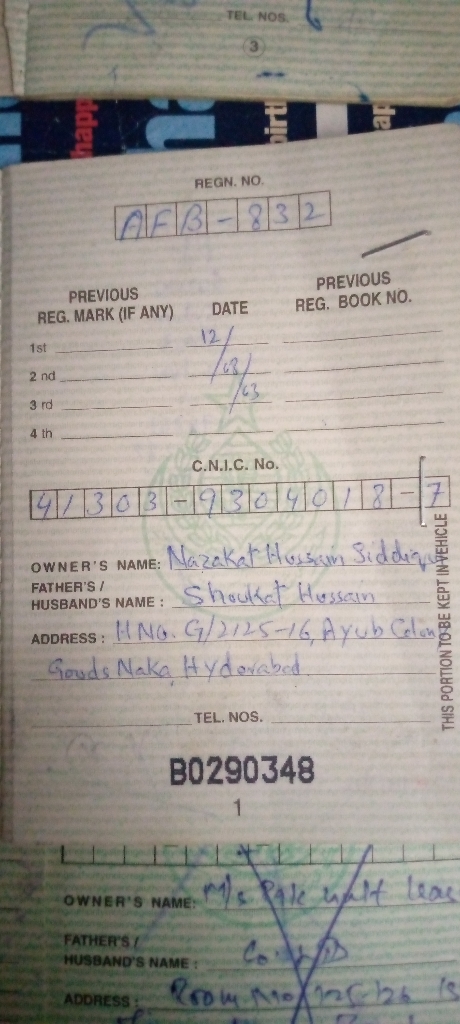 TEL. NOS.
3
happ
birth
ap
REGN. NO.
AFB-832
PREVIOUS
REG. MARK (IF ANY)
DATE
PREVIOUS
REG. BOOK NO.
1st
12/
2 nd
/03/
3 rd
/03
4 th
C.N.I.C. No.
41303-9304018-7
OWNER'S NAME: Nazakat Hussain
FATHER'S /
HUSBAND'S NAME : Shoukat Hussain
ADDRESS : HNO. G/2125-16, Ayub Colon
Goods Naka, Hyderabad.
TEL. NOS.
B0290348
1
THIS PORTION TO BE KEPT IN VEHICLE
OWNER'S NAME: M/s Pak
FATHER'S /
HUSBAND'S NAME : Co.
ADDRESS : Room No